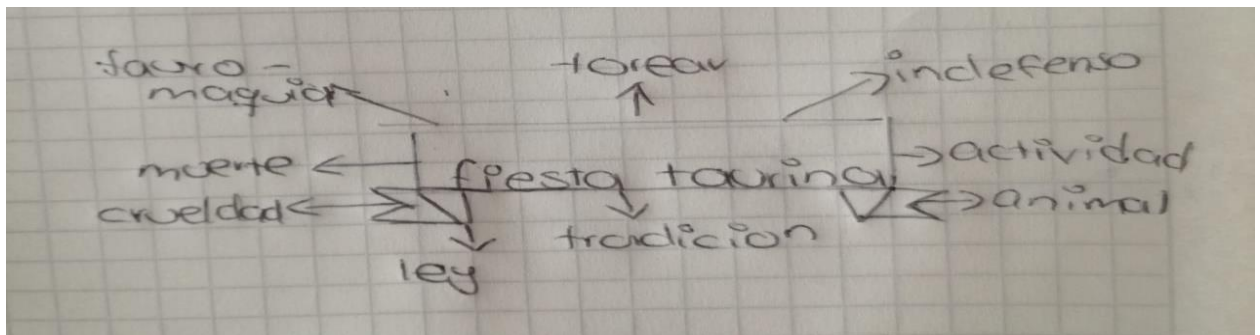 tauro-
maquia
torear
indefenso
muerte
fiesta taurina
actividad
crueldad
tradicion
animal
ley